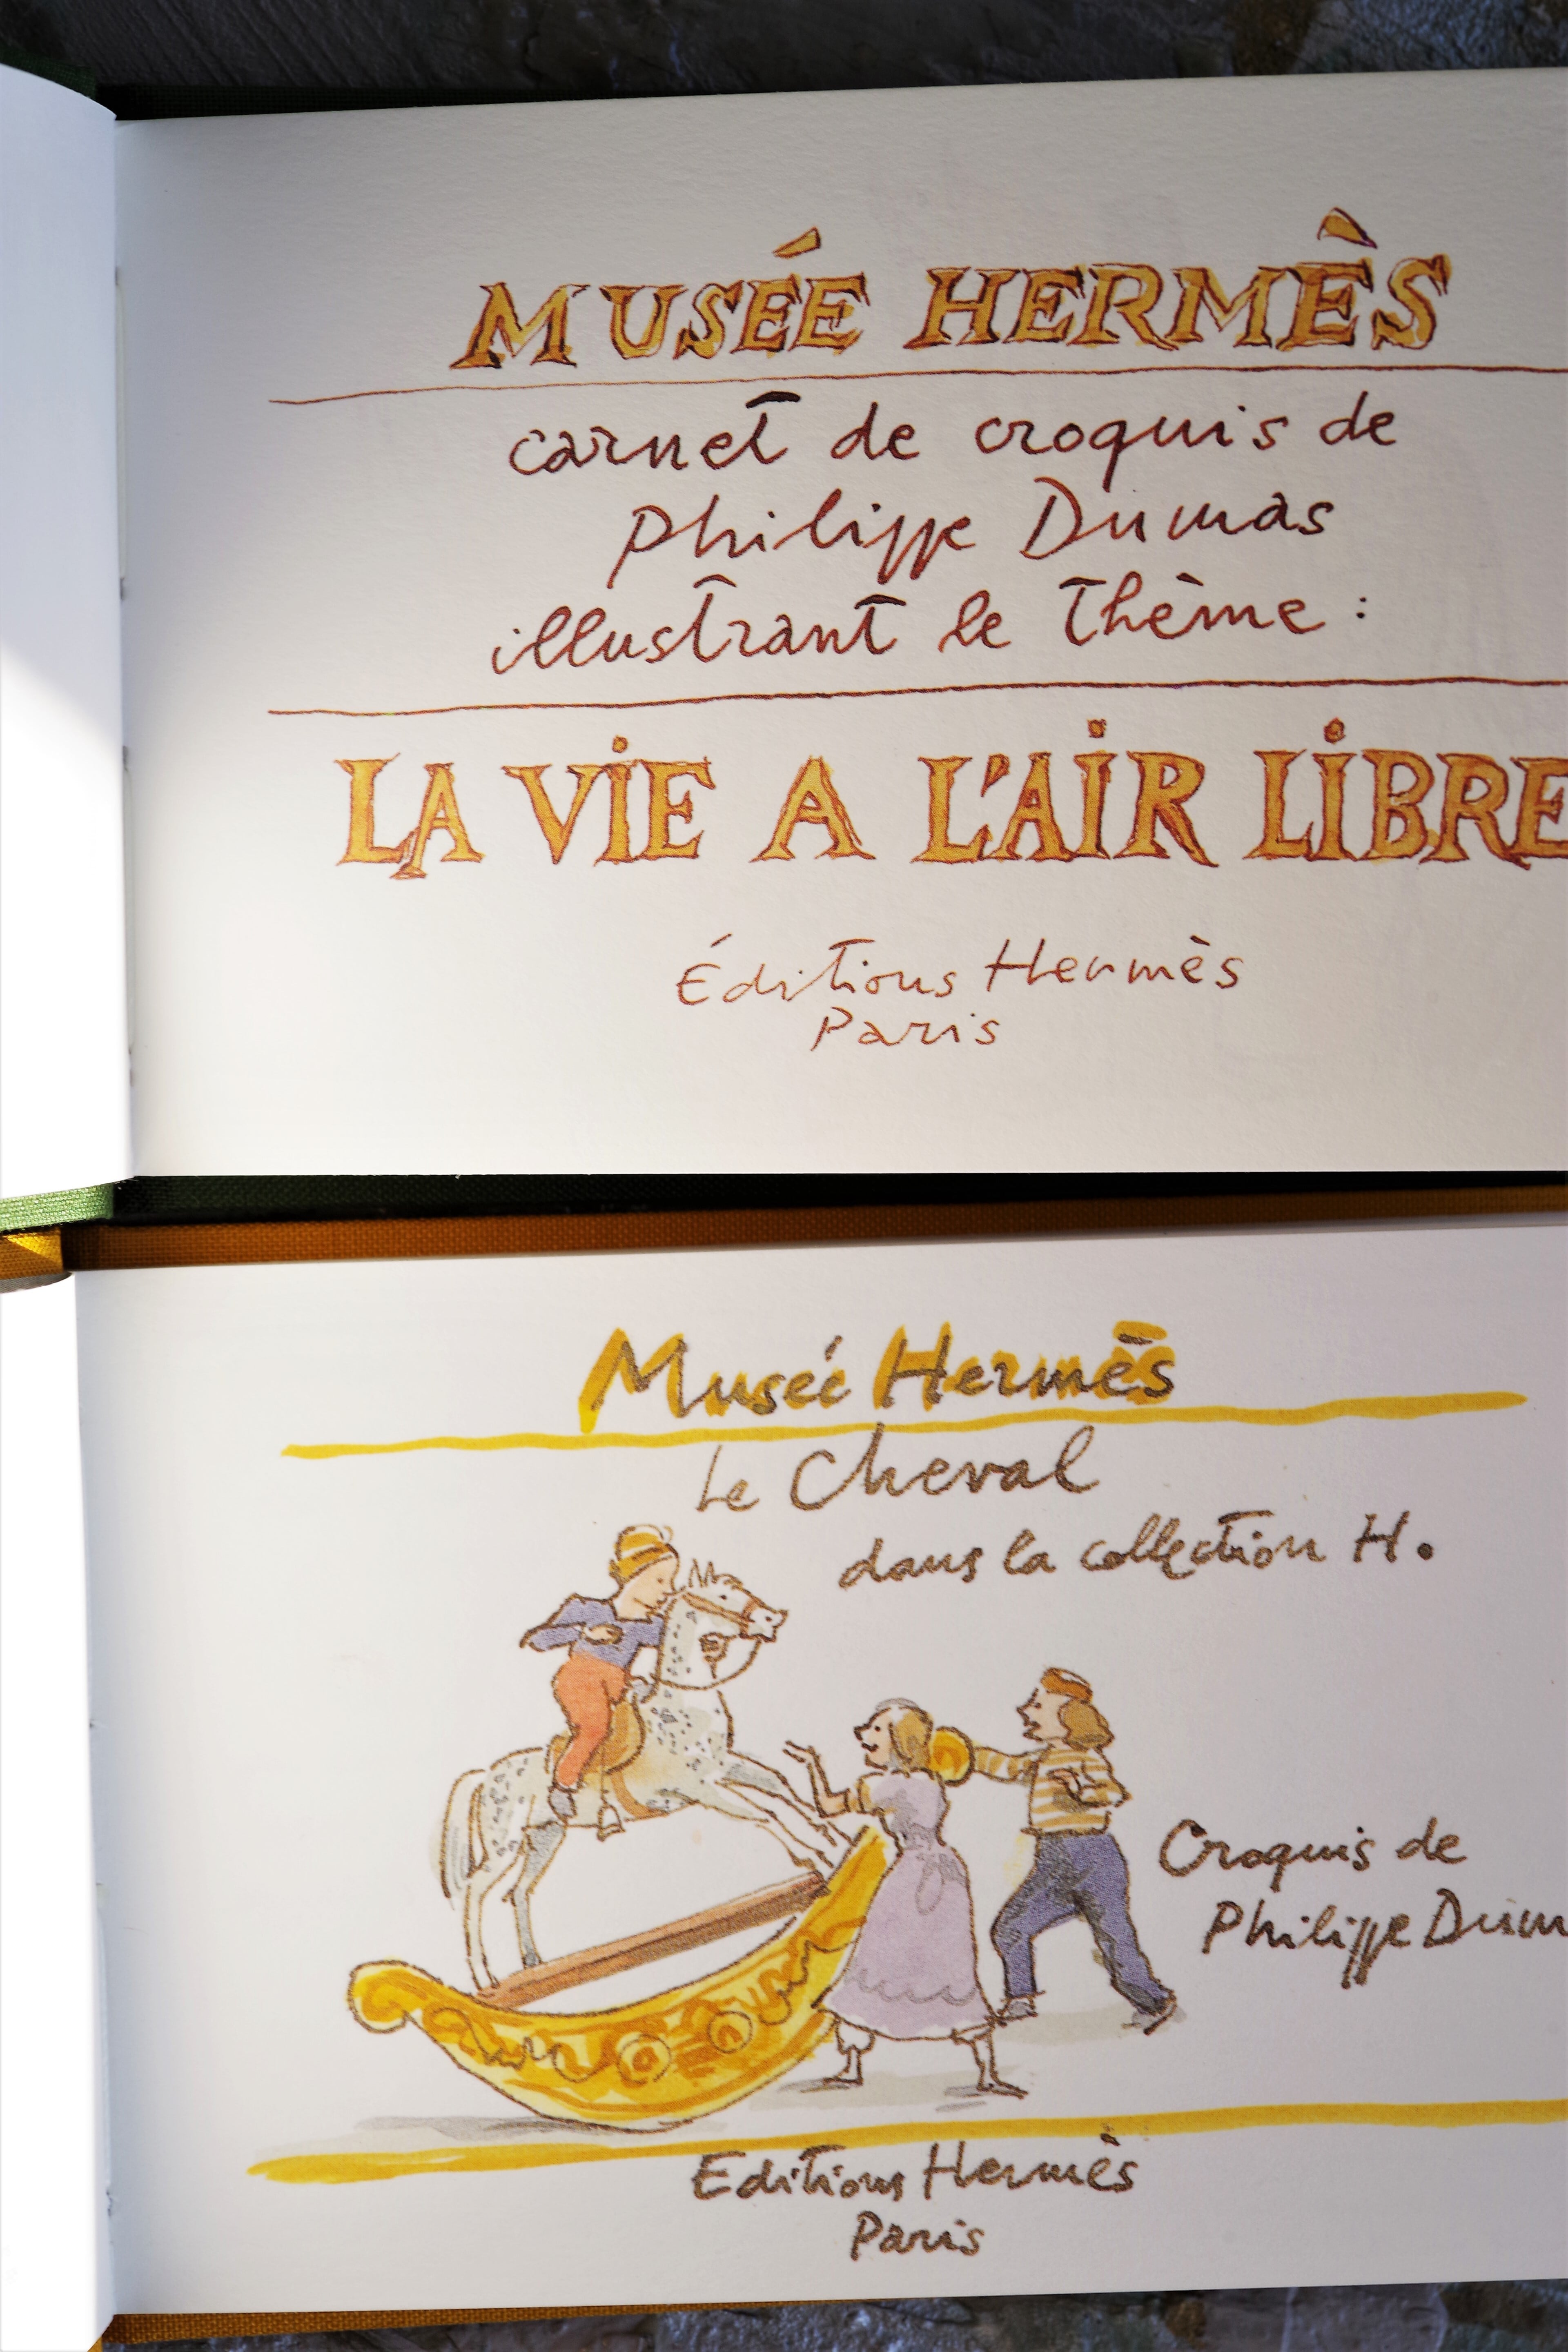 MUSÉE HERMÈS
carnet de croquis de
Philippe Dumas
illustrant le thème :
LA VIE A L'AIR LIBRE
Éditions Hermès
Paris
Musée Hermès
Le Cheval
dans la collection H.
Croquis de
Philippe Dum
Editions Hermès
Paris